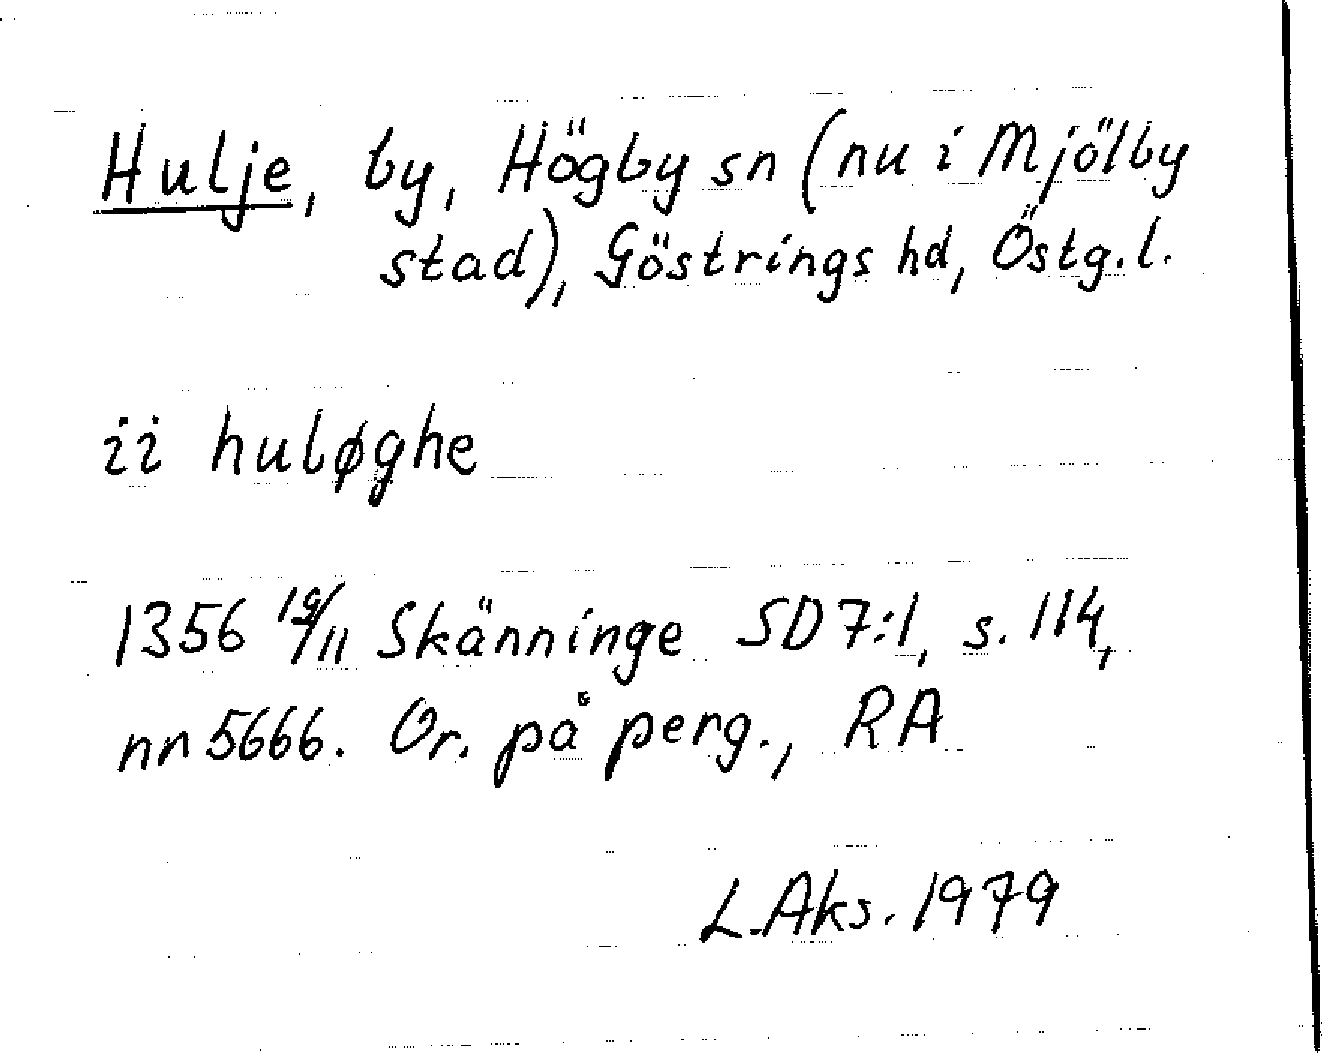 Hulje, by, Högby sn (nu i Mjölby
stad), Göstrings hd, Östg.l.
ii huløghe
1356 19/11 Skänninge SD 7:1, s. 114,
nn 5666. Or. på perg., RA
L.Aks. 1979